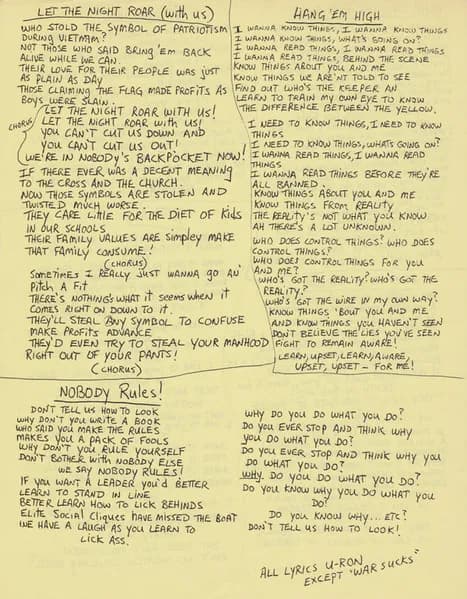 LET THE NIGHT ROAR (with us)
WHO STOLD THE SYMBOL OF PATRIOTISM
DURING VIETNAM?
NOT THOSE WHO SAID BRING 'EM BACK
ALIVE WHILE WE CAN.
THEIR LOVE FOR THEIR PEOPLE WAS JUST
AS PLAIN AS DAY
THOSE CLAIMING THE FLAG MADE PROFITS AS
BOYS WERE SLAIN.
CHORUS
(LET THE NIGHT ROAR WITH US!
LET THE NIGHT ROAR WITH US!
YOU CAN'T CUT US DOWN AND
YOU CAN'T CUT US OUT!
WE'RE IN NOBODY'S BACKPOCKET NOW!
IF THERE EVER WAS A DECENT MEANING
TO THE CROSS AND THE CHURCH.
NOW THOSE SYMBOLS ARE STOLEN AND
TWISTED MUCH WORSE.
THEY CARE LITTLE FOR THE DIET OF KIDS
IN OUR SCHOOLS
THEIR FAMILY VALUES ARE SIMPLEY MAKE
THAT FAMILY CONSUME!
(CHORUS)
SOMETIMES I REALLY JUST WANNA GO AN'
PITCH A FIT
THERE'S NOTHING'S WHAT IT SEEMS WHEN IT
COMES RIGHT ON DOWN TO IT.
THEY'LL STEAL ANY SYMBOL TO CONFUSE
MAKE PROFITS ADVANCE
THEY'D EVEN TRY TO STEAL YOUR MANHOOD
RIGHT OUT OF YOUR PANTS!
(CHORUS)
HANG 'EM HIGH
I WANNA KNOW THINGS, I WANNA KNOW THINGS
I WANNA KNOW THINGS, WHAT'S GOING ON?
I WANNA READ THINGS, I WANNA READ THINGS
I WANNA READ THINGS, BEHIND THE SCENE
KNOW THINGS ABOUT YOU AND ME
KNOW THINGS WE ARE'NT TOLD TO SEE
FIND OUT WHO'S THE KEEPER AN
LEARN TO TRAIN MY OWN EYE TO KNOW
THE DIFFERENCE BETWEEN THE YELLOW.
I NEED TO KNOW THINGS, I NEED TO KNOW
THINGS
I NEED TO KNOW THINGS, WHATS GOING ON?
I WANNA READ THINGS, I WANNA READ
THINGS
I WANNA READ THINGS BEFORE THEY'RE
ALL BANNED.
KNOW THINGS ABOUT YOU AND ME
KNOW THINGS FROM REALITY
THE REALITY'S NOT WHAT YOU KNOW
AH THERE'S A LOT UNKNOWN.
WHO DOES CONTROL THINGS? WHO DOES
CONTROL THINGS?
WHO DOES CONTROL THINGS FOR YOU
AND ME?
WHO'S GOT THE REALITY? WHO'S GOT THE
REALITY?
WHO'S GOT THE WIRE IN MY OWN WAY?
KNOW THINGS 'BOUT YOU AND ME
AND KNOW THINGS YOU HAVEN'T SEEN
DON'T BELIEVE THE LIES YOU'VE SEEN
FIGHT TO REMAIN AWARE!
LEARN, UPSET, LEARN, AWARE,
UPSET, UPSET - FOR ME!
NOBODY Rules!
DON'T TELL US HOW TO LOOK
WHY DON'T YOU WRITE A BOOK
WHO SAID YOU MAKE THE RULES
MAKES YOU A PACK OF FOOLS
WHY DON'T YOU RULE YOURSELF
DON'T BOTHER WITH NOBODY ELSE
WE SAY NOBODY RULES!
IF YOU WANT A LEADER YOU'D
LEARN TO STAND IN LINE
BETTER LEARN HOW TO LICK BEHINDS
Elite SOCIAL CLIQUES HAVE MISSED THE BOAT
WE HAVE A LAUGH AS YOU LEARN TO
LICK ASS.
WHY DO YOU DO WHAT YOU DO?
DO YOU EVER STOP AND THINK WHY
YOU DO WHAT YOU DO?
DO YOU EVER STOP AND THINK WHY YOU
DO WHAT YOU DO?
WHY DO YOU DO WHAT YOU DO?
DO YOU KNOW WHY YOU DO WHAT YOU
DO?
DO YOU KNOW WHY... ETC?
DON'T TELL US HOW TO LOOK!
ALL LYRICS U-RON
EXCEPT "WAR SUCKS"